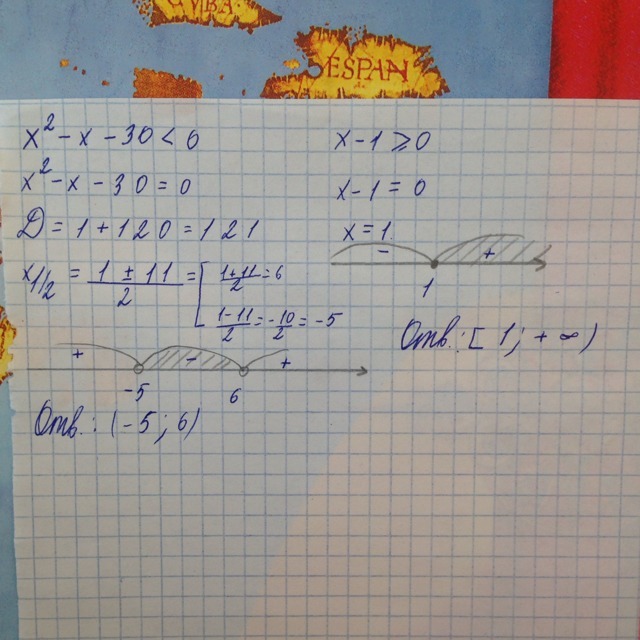 СИВА
ESPAN
x² - x - 30 < 0
x² - x - 30 = 0
D = 1 + 120 = 121
x1/2 = (1 ± 11)/2 = [ (1+11)/2 = 6
(1-11)/2 = -10/2 = -5
+ - +
-5 6
Отв.: (-5; 6)
x - 1 ⩾ 0
x - 1 = 0
x = 1.
- +
1
Отв.: [1; +∞)